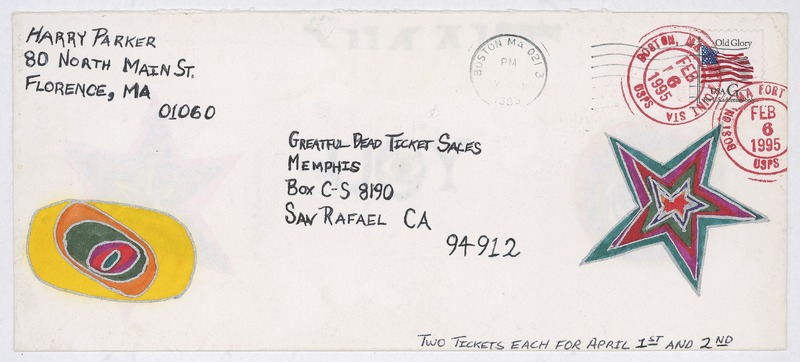 HARRY PARKER
80 NORTH MAIN ST.
FLORENCE, MA
01060
BOSTON MA 021 3
PM
1995
BOSTON, MA
FEB
6
1995
USPS
Old Glory
USA G
MA FORT
BOSTON
FEB
6
1995
USPS
GREATFUL DEAD TICKET SALES
MEMPHIS
BOX C-S 8190
SAN RAFAEL CA
94912
TWO TICKETS EACH FOR APRIL 1ST AND 2ND